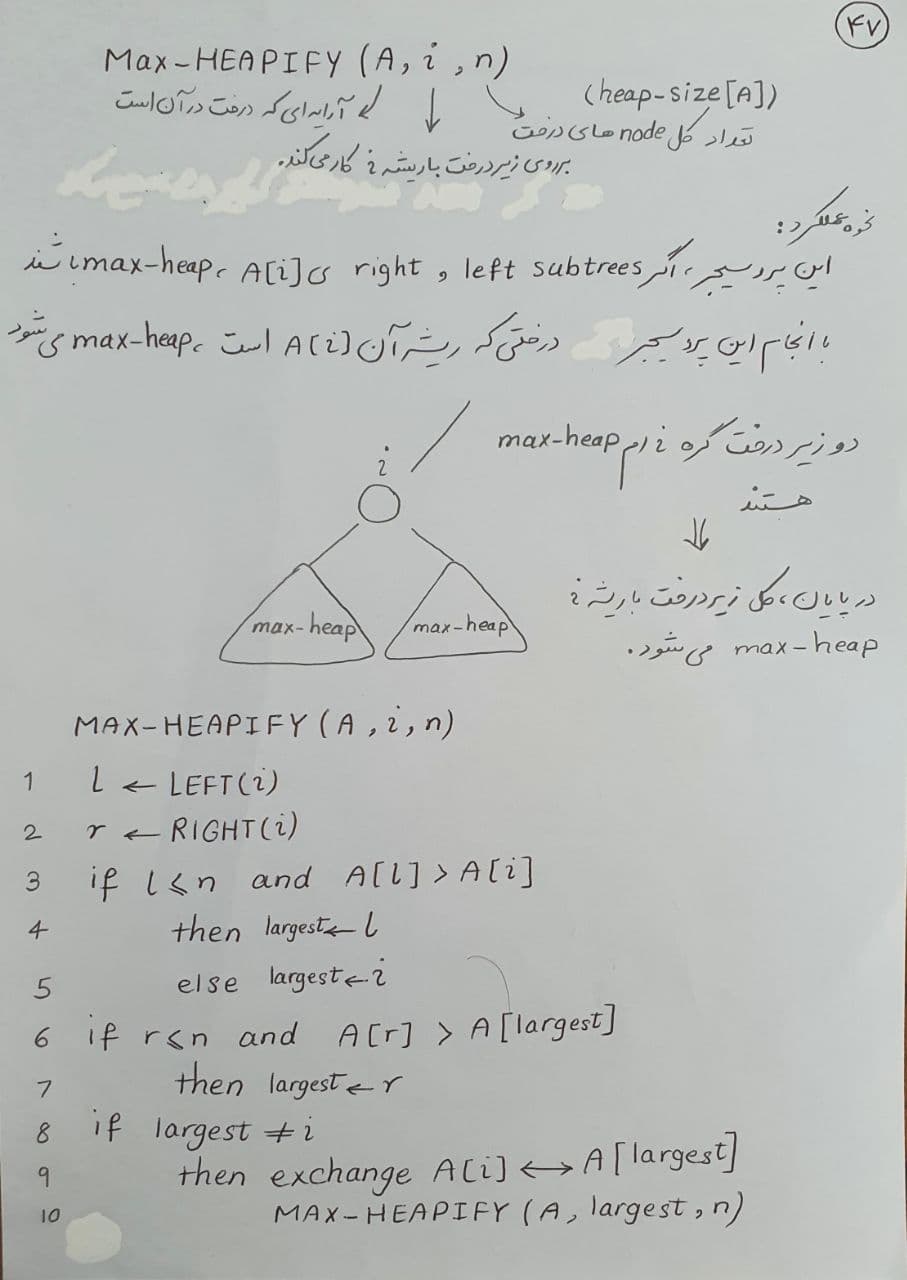 ۴۷
Max-HEAPIFY (A, i, n)
(heap-size[A])
آرایه‌ای که درخت در آن است
تعداد کل node های درخت
بر روی زیر درخت با ریشه i کار می‌کند.
نحوه عملکرد:
این پروسیجر، اگر left subtrees و right ی A[i]، max-heap باشند
با انجام این پروسیجر درختی که ریشه آن A[i] است، max-heap می‌شود
i
دو زیر درخت گره i ام max-heap
هستند
⇓
در پایان، کل زیر درخت با ریشه i
max-heap می‌شود.
max-heap
max-heap
MAX-HEAPIFY (A, i, n)
1 l ← LEFT(i)
2 r ← RIGHT(i)
3 if l ≤ n and A[l] > A[i]
4 then largest ← l
5 else largest ← i
6 if r ≤ n and A[r] > A[largest]
7 then largest ← r
8 if largest ≠ i
9 then exchange A[i] ↔ A[largest]
10 MAX-HEAPIFY (A, largest, n)